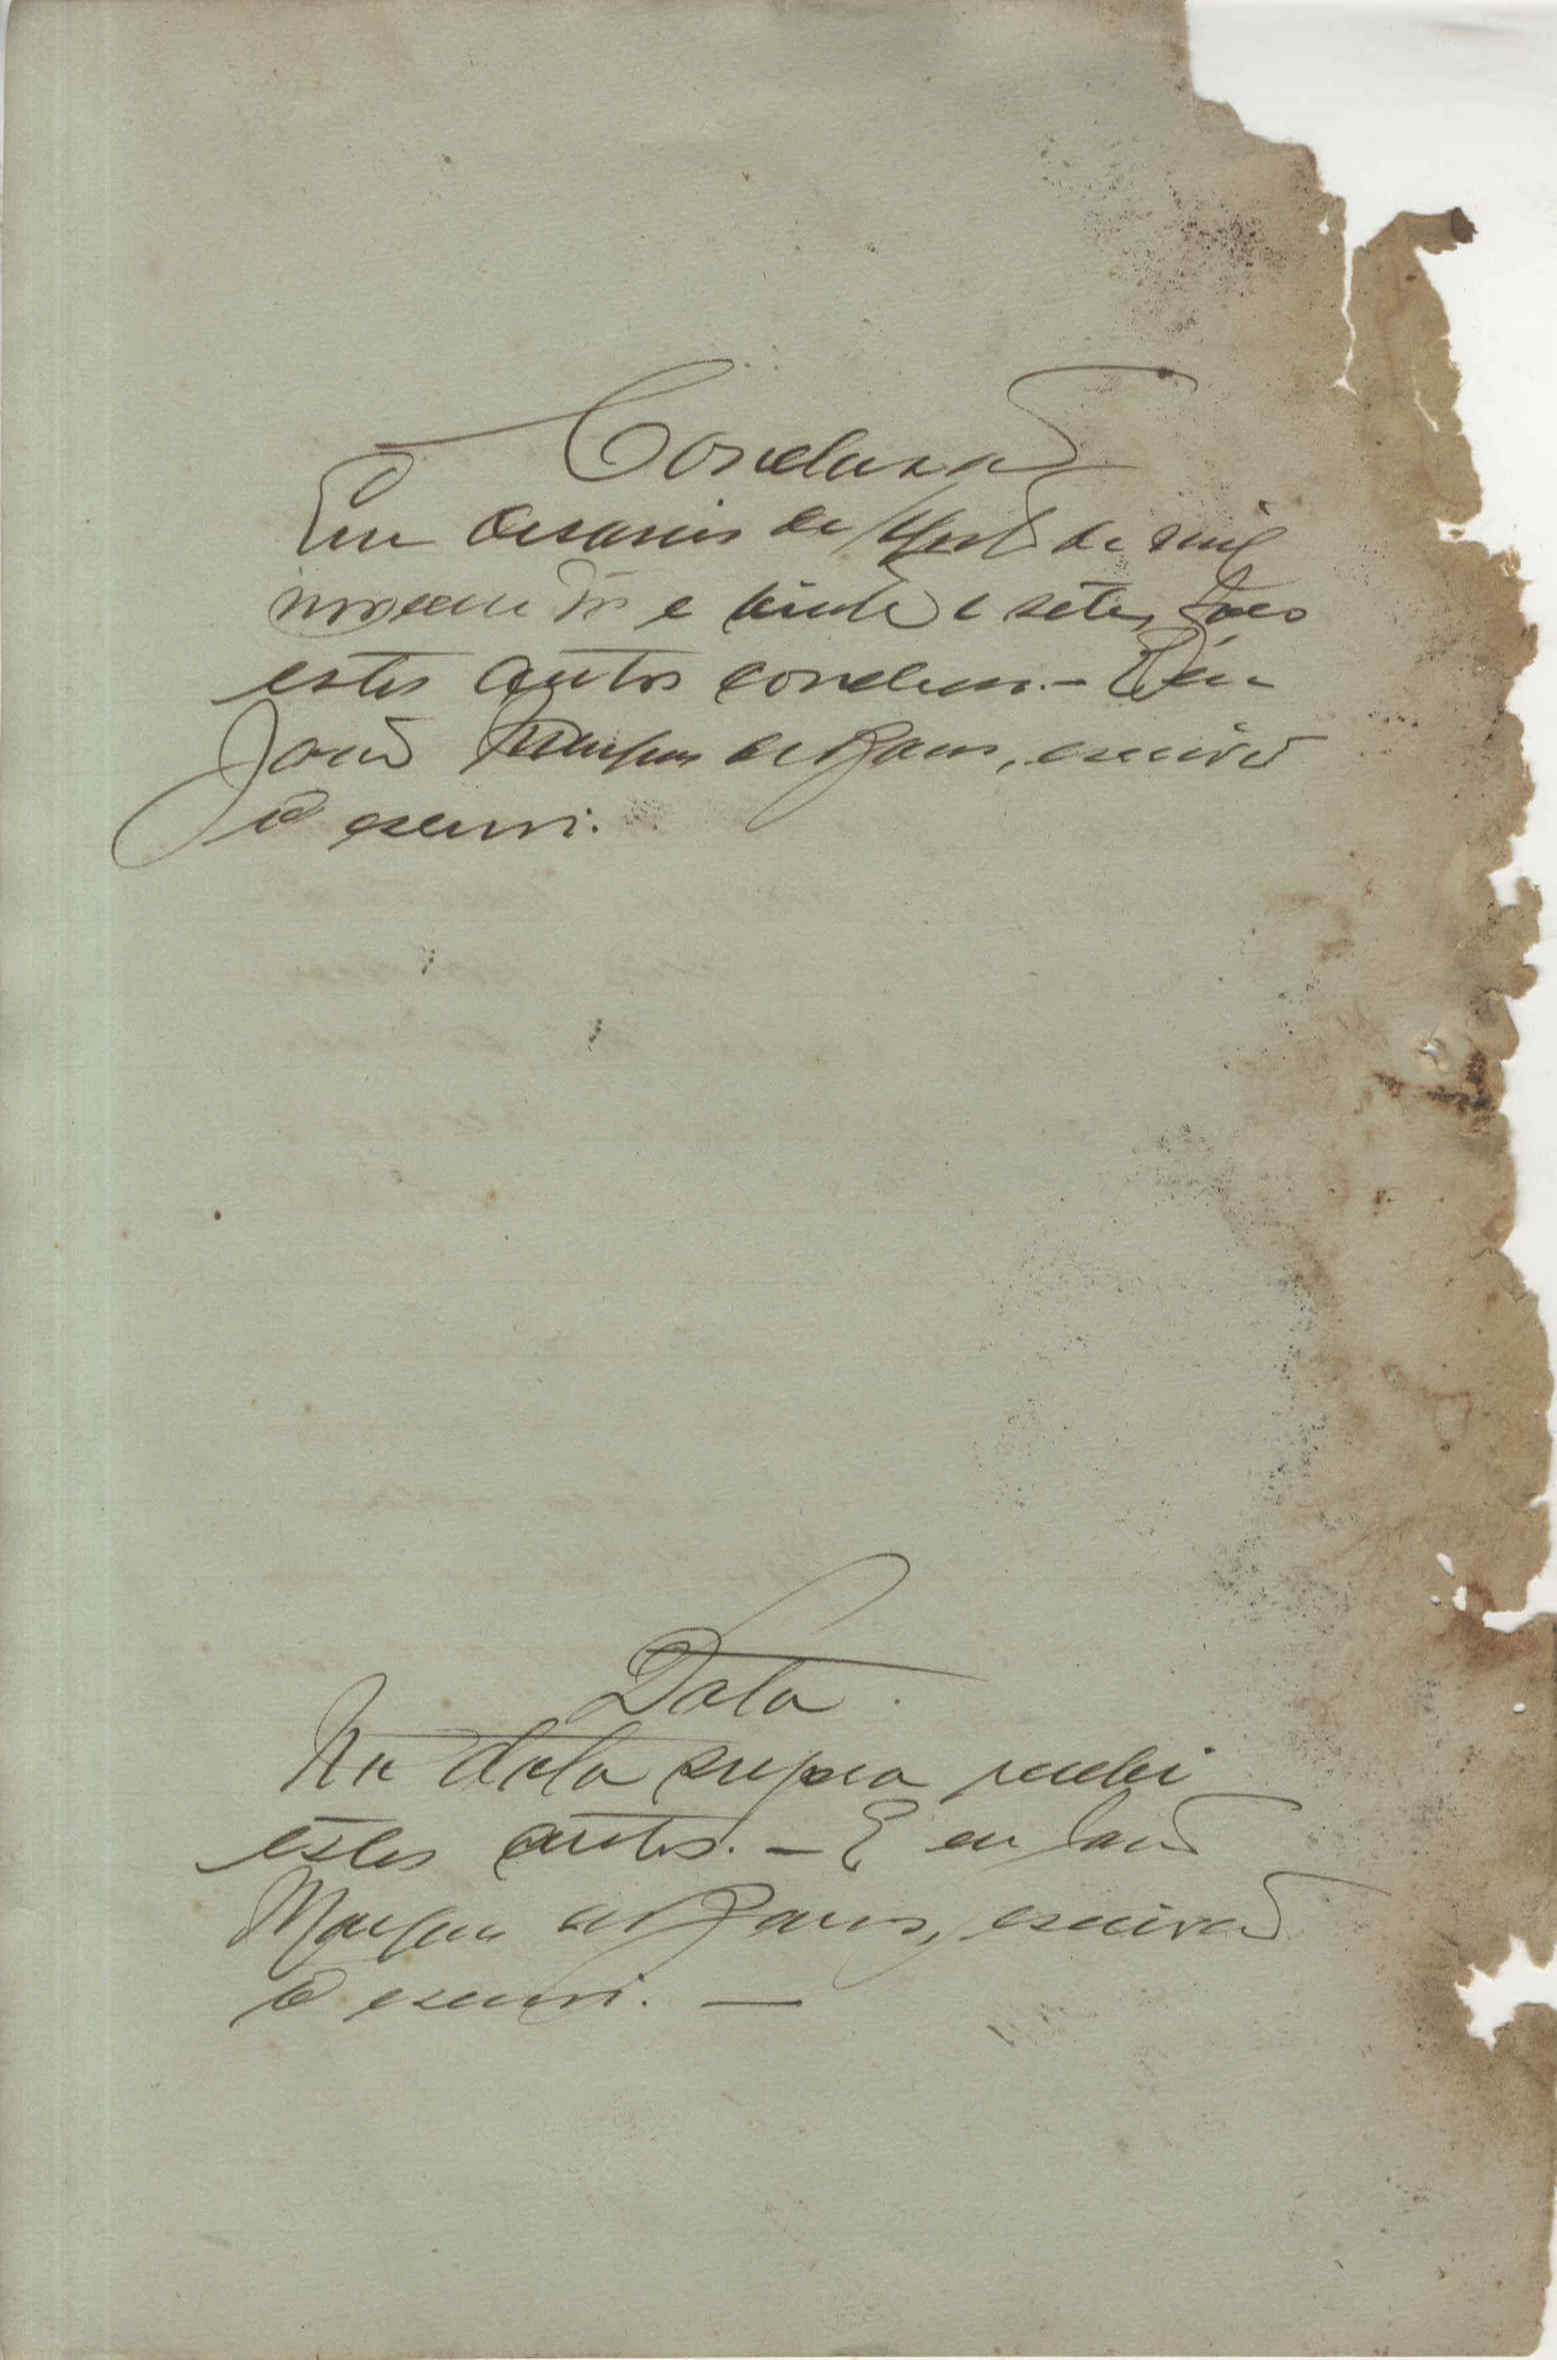 Conclusão
Em deseseis de de mil
novecentos e vinte e sete, faço
estes autos conclusos. - Eu
João Marques de, escrivão
o escrevi.
Data
Na data supra recebi
estes autos. - E eu João
Marques de, escrivão
o escrevi. —